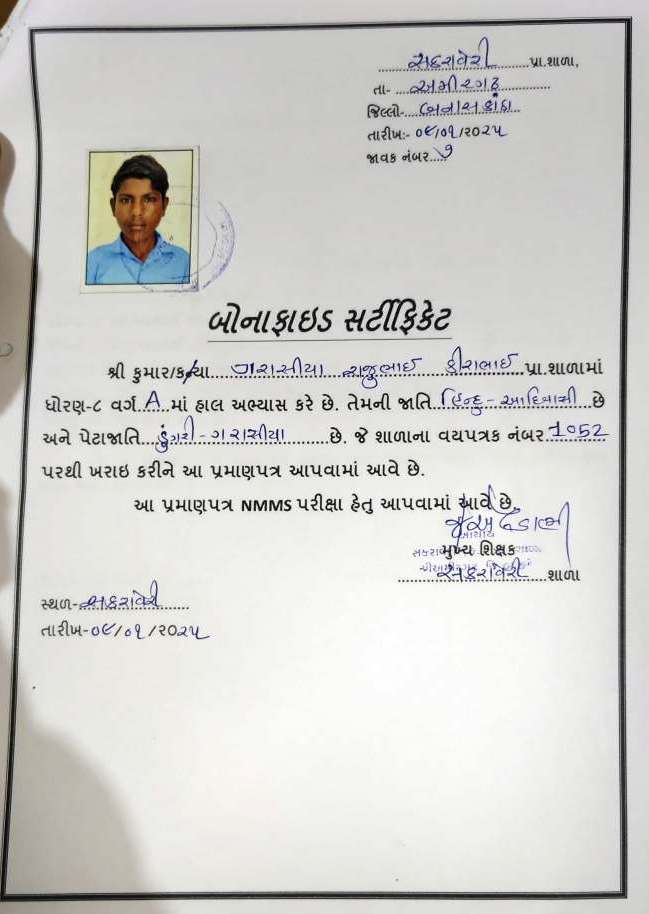 સકરાવેરી પ્રા.શાળા,
તા- અમીરગઢ
જિલ્લો- બનાસકાંઠા
તારીખ:- ૦૯/૦૧/૨૦૨૫
જાવક નંબર ૭
બોનાફાઇડ સર્ટીફિકેટ
શ્રી કુમાર/કન્યા ગરાસીયા રાજુભાઈ હીરાભાઈ પ્રા.શાળામાં
ધોરણ-૮ વર્ગ A માં હાલ અભ્યાસ કરે છે. તેમની જાતિ હિન્દુ-આદિવાસી છે
અને પેટાજાતિ ડુંગરી-ગરાસીયા છે. જે શાળાના વયપત્રક નંબર 1052
પરથી ખરાઇ કરીને આ પ્રમાણપત્ર આપવામાં આવે છે.
આ પ્રમાણપત્ર NMMS પરીક્ષા હેતુ આપવામાં આવે છે.
આચાર્ય
મુખ્ય શિક્ષક
સકરાવેરી શાળા
સ્થળ- સકરાવેરી
તારીખ- ૦૯/૦૧/૨૦૨૫